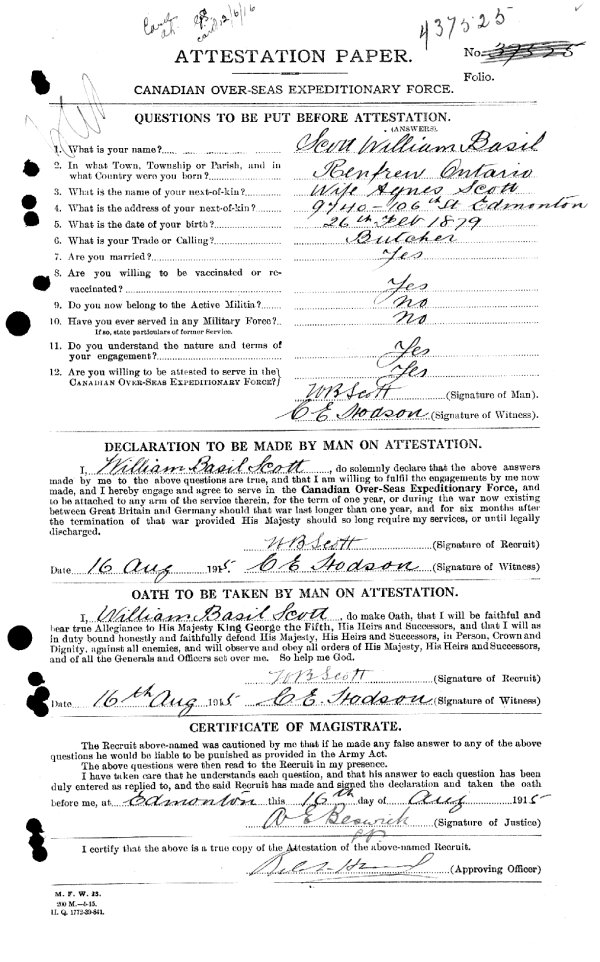 437525
ATTESTATION PAPER.
No. 37525
Folio.
CANADIAN OVER-SEAS EXPEDITIONARY FORCE.
QUESTIONS TO BE PUT BEFORE ATTESTATION.
(ANSWERS).
1. What is your name? Scott William Basil
2. In what Town, Township or Parish, and in
what Country were you born? Renfrew Ontario
3. What is the name of your next-of-kin? Wife Agnes Scott
4. What is the address of your next-of-kin? 9740-106th St Edmonton
5. What is the date of your birth? 26th Feb 1879
6. What is your Trade or Calling? Butcher
7. Are you married? Yes
8. Are you willing to be vaccinated or re-
vaccinated? Yes
9. Do you now belong to the Active Militia? No
10. Have you ever served in any Military Force? No
If so, state particulars of former Service.
11. Do you understand the nature and terms of
your engagement? Yes
12. Are you willing to be attested to serve in the
CANADIAN OVER-SEAS EXPEDITIONARY FORCE? Yes
WB Scott (Signature of Man).
C E Hodson (Signature of Witness).
DECLARATION TO BE MADE BY MAN ON ATTESTATION.
I, William Basil Scott, do solemnly declare that the above answers
made by me to the above questions are true, and that I am willing to fulfil the engagements by me now
made, and I hereby engage and agree to serve in the Canadian Over-Seas Expeditionary Force, and
to be attached to any arm of the service therein, for the term of one year, or during the war now existing
between Great Britain and Germany should that war last longer than one year, and for six months after
the termination of that war provided His Majesty should so long require my services, or until legally
discharged.
W B Scott (Signature of Recruit)
Date 16 Aug 1915 C E Hodson (Signature of Witness)
OATH TO BE TAKEN BY MAN ON ATTESTATION.
I, William Basil Scott, do make Oath, that I will be faithful and
bear true Allegiance to His Majesty King George the Fifth, His Heirs and Successors, and that I will as
in duty bound honestly and faithfully defend His Majesty, His Heirs and Successors, in Person, Crown and
Dignity, against all enemies, and will observe and obey all orders of His Majesty, His Heirs and Successors,
and of all the Generals and Officers set over me. So help me God.
W B Scott (Signature of Recruit)
Date 16th Aug 1915 C E Hodson (Signature of Witness)
CERTIFICATE OF MAGISTRATE.
The Recruit above-named was cautioned by me that if he made any false answer to any of the above
questions he would be liable to be punished as provided in the Army Act.
The above questions were then read to the Recruit in my presence.
I have taken care that he understands each question, and that his answer to each question has been
duly entered as replied to, and the said Recruit has made and signed the declaration and taken the oath
before me, at Edmonton this 16th day of Aug 1915
(Signature of Justice)
I certify that the above is a true copy of the Attestation of the above-named Recruit.
(Approving Officer)
M. F. W. 23.
200 M.—5-15.
H. Q. 1772-39-841.